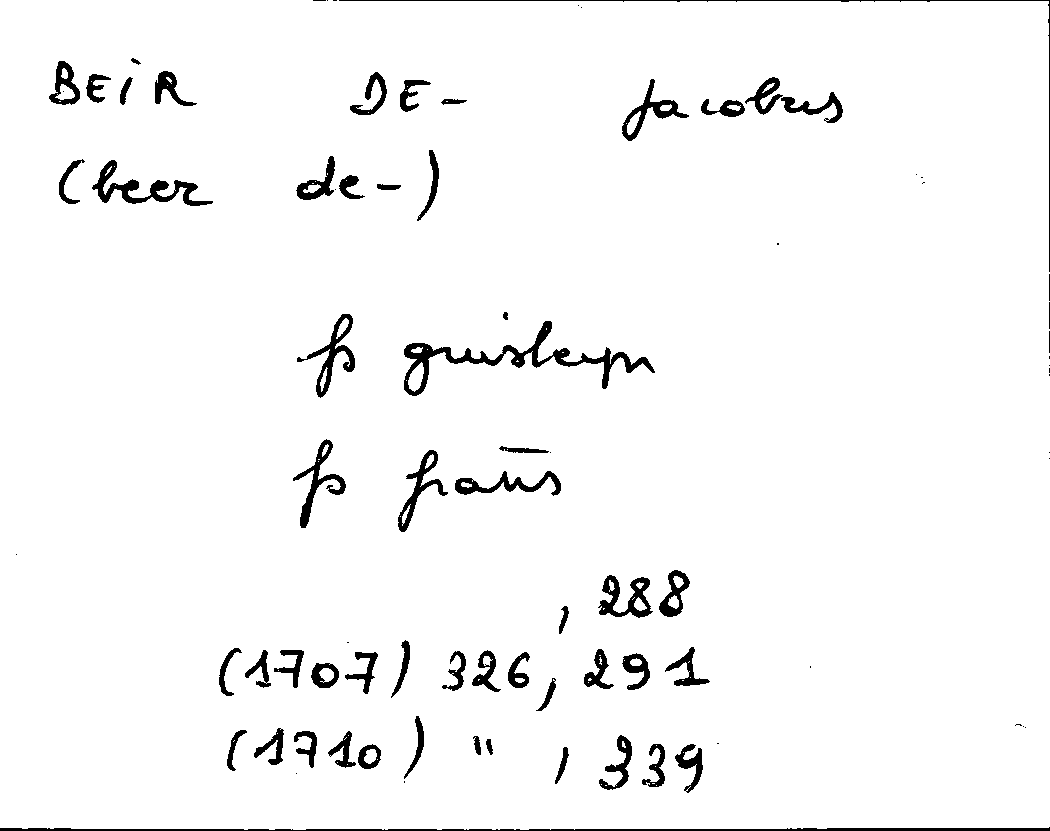 BEIR DE- Jacobus
(beer de-)
fs guisleyn
fs frañs
, 288
(1707) 326, 291
(1710) " , 339